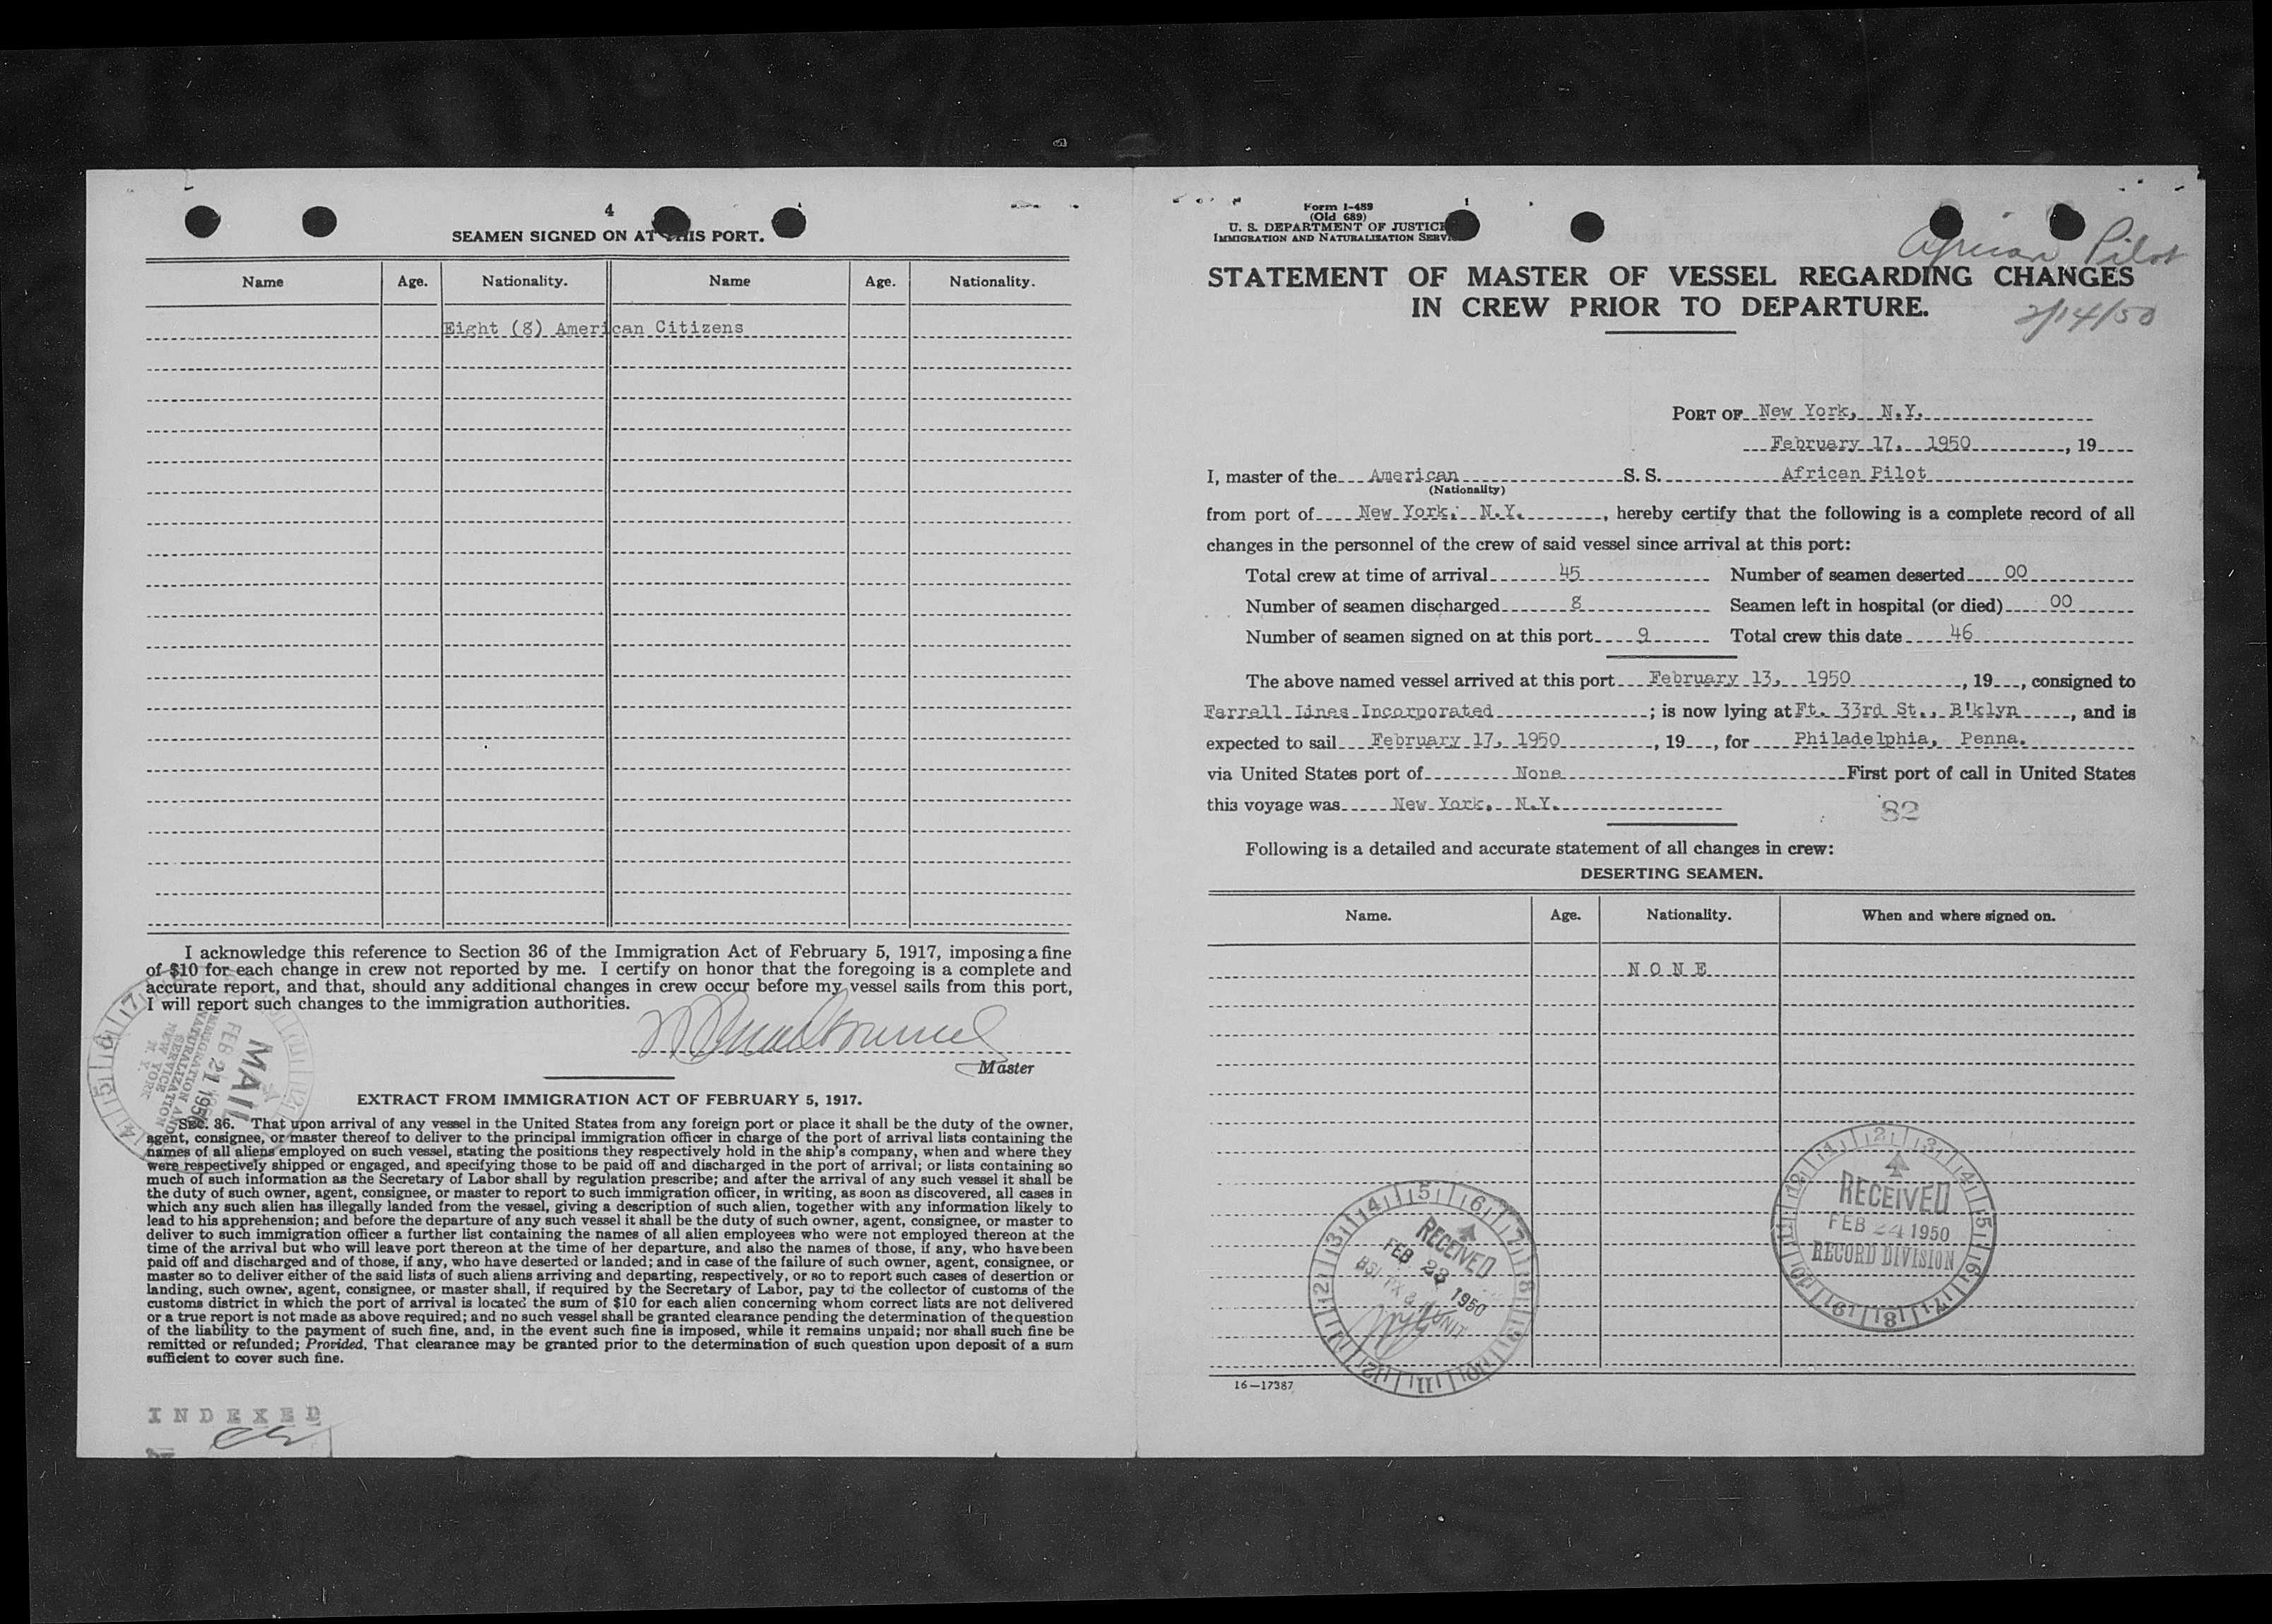 4
SEAMEN SIGNED ON AT THIS PORT.
Name Age. Nationality. Name Age. Nationality.
Eight (8) American Citizens
I acknowledge this reference to Section 36 of the Immigration Act of February 5, 1917, imposing a fine
of $10 for each change in crew not reported by me. I certify on honor that the foregoing is a complete and
accurate report, and that, should any additional changes in crew occur before my vessel sails from this port,
I will report such changes to the immigration authorities.
Master
MAIL
FEB 21 1950
IMMIGRATION AND
NATURALIZATION
SERVICE
NEW YORK
N. Y.
EXTRACT FROM IMMIGRATION ACT OF FEBRUARY 5, 1917.
SEC. 36. That upon arrival of any vessel in the United States from any foreign port or place it shall be the duty of the owner,
agent, consignee, or master thereof to deliver to the principal immigration officer in charge of the port of arrival lists containing the
names of all aliens employed on such vessel, stating the positions they respectively hold in the ship's company, when and where they
were respectively shipped or engaged, and specifying those to be paid off and discharged in the port of arrival; or lists containing so
much of such information as the Secretary of Labor shall by regulation prescribe; and after the arrival of any such vessel it shall be
the duty of such owner, agent, consignee, or master to report to such immigration officer, in writing, as soon as discovered, all cases in
which any such alien has illegally landed from the vessel, giving a description of such alien, together with any information likely to
lead to his apprehension; and before the departure of any such vessel it shall be the duty of such owner, agent, consignee, or master to
deliver to such immigration officer a further list containing the names of all alien employees who were not employed thereon at the
time of the arrival but who will leave port thereon at the time of her departure, and also the names of those, if any, who have been
paid off and discharged and of those, if any, who have deserted or landed; and in case of the failure of such owner, agent, consignee, or
master so to deliver either of the said lists of such aliens arriving and departing, respectively, or so to report such cases of desertion or
landing, such owner, agent, consignee, or master shall, if required by the Secretary of Labor, pay to the collector of customs of the
customs district in which the port of arrival is located the sum of $10 for each alien concerning whom correct lists are not delivered
or a true report is not made as above required; and no such vessel shall be granted clearance pending the determination of the question
of the liability to the payment of such fine, and, in the event such fine is imposed, while it remains unpaid; nor shall such fine be
remitted or refunded; Provided, That clearance may be granted prior to the determination of such question upon deposit of a sum
sufficient to cover such fine.
INDEXED
Form I-489
(Old 689)
U. S. DEPARTMENT OF JUSTICE
IMMIGRATION AND NATURALIZATION SERVICE
1
African Pilot
STATEMENT OF MASTER OF VESSEL REGARDING CHANGES
IN CREW PRIOR TO DEPARTURE.
2/14/50
PORT OF New York, N.Y.
February 17, 1950, 19
I, master of the American S. S. African Pilot
(Nationality)
from port of New York, N.Y., hereby certify that the following is a complete record of all
changes in the personnel of the crew of said vessel since arrival at this port:
Total crew at time of arrival 45 Number of seamen deserted 00
Number of seamen discharged 8 Seamen left in hospital (or died) 00
Number of seamen signed on at this port 9 Total crew this date 46
The above named vessel arrived at this port February 13, 1950, 19, consigned to
Farrell Lines Incorporated; is now lying at Ft. 33rd St., B'klyn, and is
expected to sail February 17, 1950, 19, for Philadelphia, Penna.
via United States port of None First port of call in United States
this voyage was New York, N.Y.
82
Following is a detailed and accurate statement of all changes in crew:
DESERTING SEAMEN.
Name. Age. Nationality. When and where signed on.
NONE
RECEIVED
FEB 23 1950
UNIT
RECEIVED
FEB 24 1950
RECORD DIVISION
16—17387